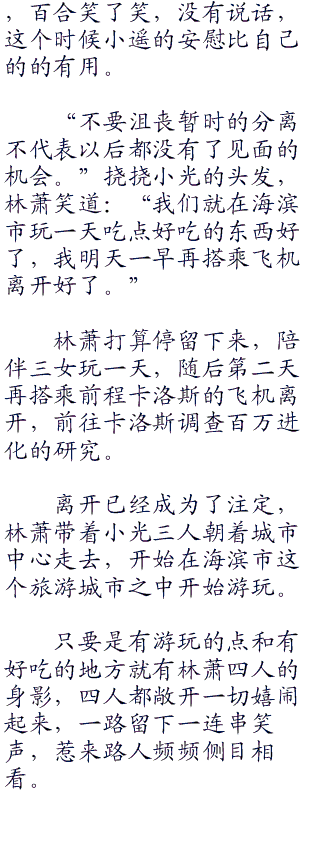 ，百合笑了笑，没有说话，
这个时候小遥的安慰比自己
的的有用。
“不要沮丧暂时的分离
不代表以后都没有了见面的
机会。”挠挠小光的头发，
林萧笑道：“我们就在海滨
市玩一天吃点好吃的东西好
了，我明天一早再搭乘飞机
离开好了。”
林萧打算停留下来，陪
伴三女玩一天，随后第二天
再搭乘前程卡洛斯的飞机离
开，前往卡洛斯调查百万进
化的研究。
离开已经成为了注定，
林萧带着小光三人朝着城市
中心走去，开始在海滨市这
个旅游城市之中开始游玩。
只要是有游玩的点和有
好吃的地方就有林萧四人的
身影，四人都敞开一切嬉闹
起来，一路留下一连串笑
声，惹来路人频频侧目相
看。